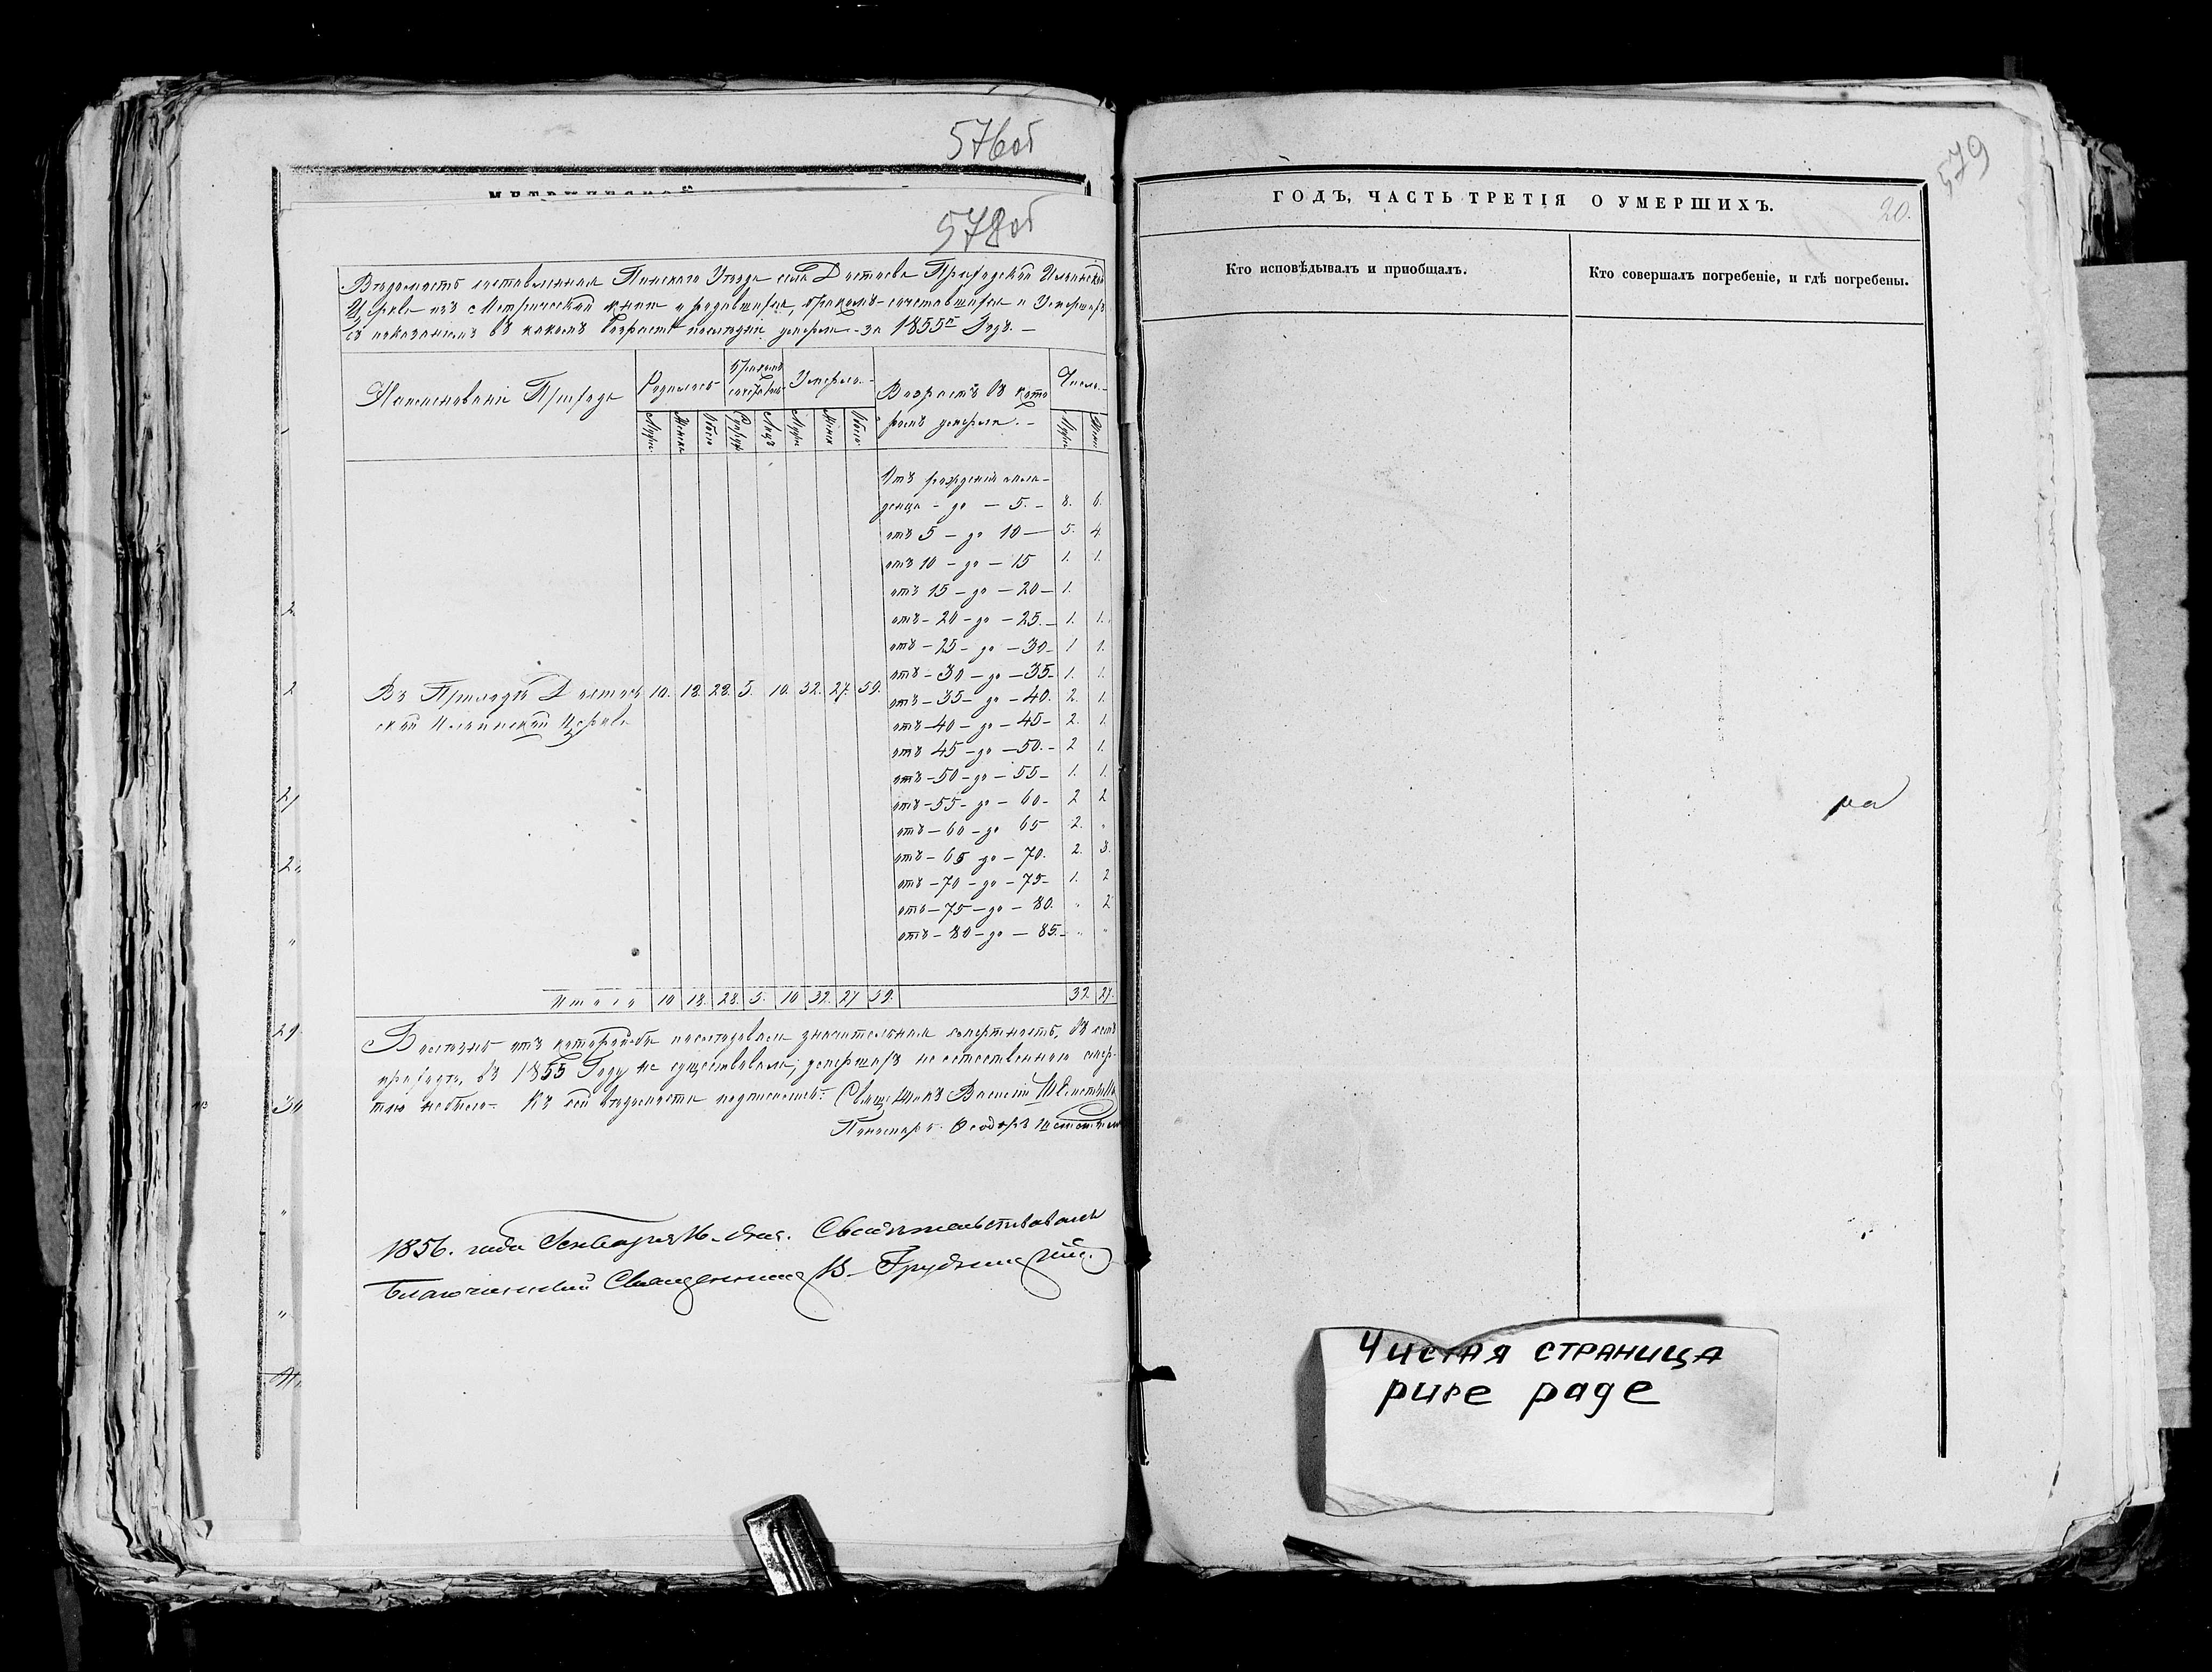 576об
МЕТРИЧЕСКОЙ
578об
Вѣдомость составленная Пинскаго Уѣзда села Достоева Приходской Ильинской
Церкви изъ Метрической книги о родившихся, бракомъ-сочетавшихся и Умершихъ
съ показаніемъ въ какомъ возрастѣ последніе умерли-за 1855й Годъ.-
Наименованіе Прихода
Родилось-
Бракомъ сочетались
Умерло.-
Возрастъ въ кото
ромъ умерли.-
Число.-
Муж. Женск Обоего Супруж Лицъ Муж Женск Обоего Муж Женс
Отъ рожденія мла-
денца - до - 5. - 8. 6.
отъ 5 - до 10 — 5. 4
отъ 10 - до - 15 1. 1.
отъ 15 - до - 20 - 1.
отъ - 20 - до - 25. - 1. 1.
отъ - 25 - до - 30 - 1 1.
отъ - 30 - до - 35 - 1. 1.
Въ Приходѣ Достоев 10. 18. 28. 5. 10. 32. 27. 59. отъ - 35 - до - 40. 2. 1.
ской Ильинской Церкви отъ - 40 - до - 45 - 2. 1.
отъ 45 - до - 50. - 2 1.
отъ - 50 - до - 55 - 1. 1.
отъ - 55 - до - 60 - 2 2
отъ - 60 - до 65 2. "
отъ - 65 до - 70. 2. 3.
отъ - 70 - до - 75 - 1. 2
отъ - 75 - до - 80. " 2
отъ - 80 - до - 85. - " "
Итого 10 18. 28. 5. 10 32. 27 59. 32. 27.
Болезни отъ которой бы последовала значительная смертность, въ семъ
приходѣ, въ 1855 Году не существовало; умершихъ не естественною смер-
тію небыло- Къ сей вѣдомости подписались: Свящ-никъ Василій
Пономарь Ѳеодоръ
1856. года Генваря 16-дня. Свидѣтельствовалъ
Благочинный Священникъ В-
2
2
2
2
"
29
30
"
"
579
ГОДЪ, ЧАСТЬ ТРЕТІЯ О УМЕРШИХЪ.
20.
Кто исповѣдывалъ и пріобщалъ.
Кто совершалъ погребеніе, и гдѣ погребены.
ра
Чистая страница
pure page